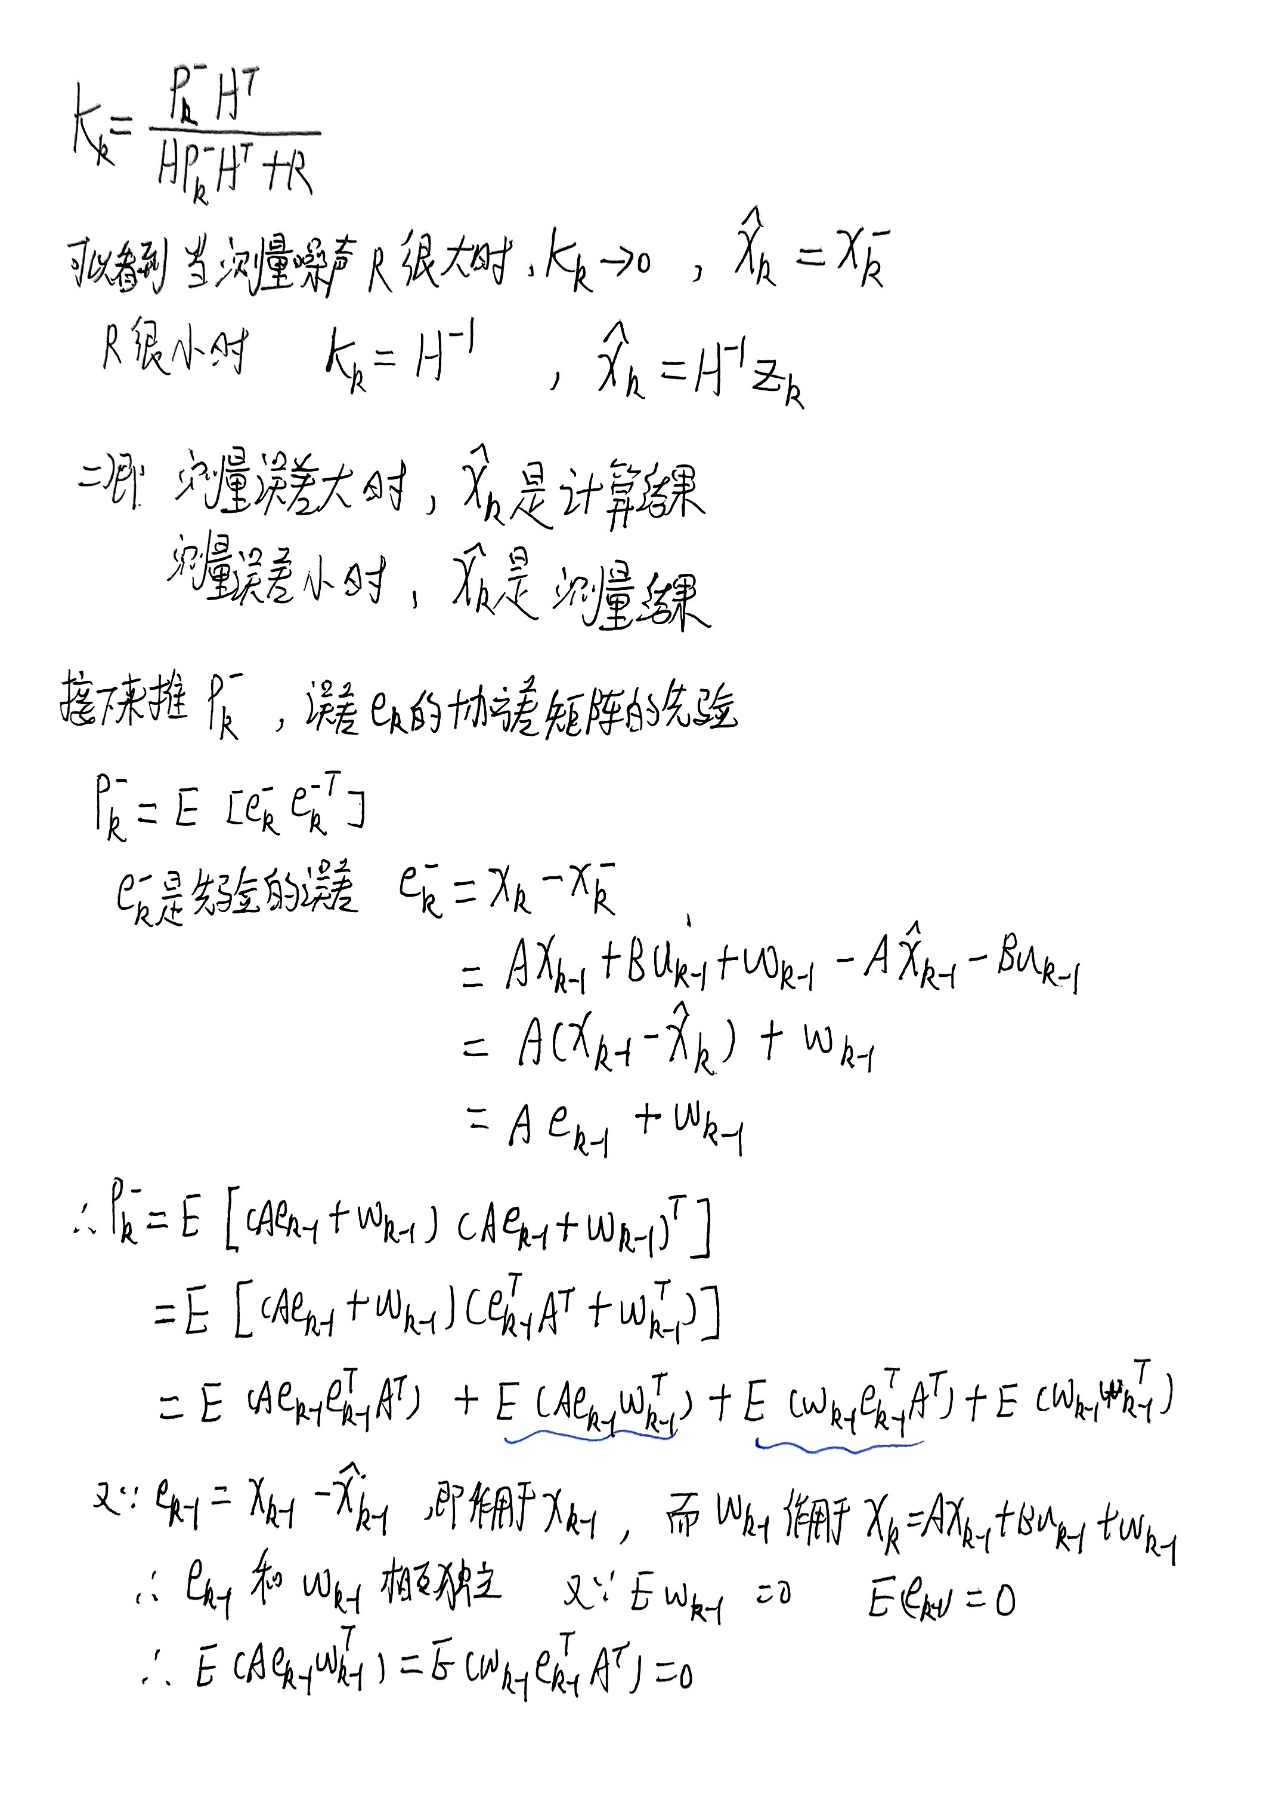 K_k = \frac{P_k^- H^T}{H P_k^- H^T + R}
可以看到 当测量噪声 R 很大时, K_k → 0 , \hat{x}_k = x_k^-
R 很小时 K_k = H^{-1} , \hat{x}_k = H^{-1} z_k
二即 测量误差大时, \hat{x}_k 是计算结果
测量误差小时, \hat{x}_k 是 测量结果
接下来推 P_k^- , 误差 e_k 的协方差矩阵的先验
P_k^- = E [e_k^- e_k^{-T}]
e_k^- 是先验的误差 e_k^- = x_k - x_k^-
= A x_{k-1} + B u_{k-1} + w_{k-1} - A \hat{x}_{k-1} - B u_{k-1}
= A(x_{k-1} - \hat{x}_k) + w_{k-1}
= A e_{k-1} + w_{k-1}
∴ P_k^- = E [(A e_{k-1} + w_{k-1}) (A e_{k-1} + w_{k-1})^T]
= E [(A e_{k-1} + w_{k-1}) (e_{k-1}^T A^T + w_{k-1}^T)]
= E (A e_{k-1} e_{k-1}^T A^T) + E (A e_{k-1} w_{k-1}^T) + E (w_{k-1} e_{k-1}^T A^T) + E (w_{k-1} w_{k-1}^T)
又∵ e_{k-1} = x_{k-1} - \hat{x}_{k-1} , 即作用于 x_{k-1} , 而 w_{k-1} 作用于 x_k = A x_{k-1} + B u_{k-1} + w_{k-1}
∴ e_{k-1} 和 w_{k-1} 相互独立 又∵ E w_{k-1} = 0 E(e_{k-1}) = 0
∴ E (A e_{k-1} w_{k-1}^T) = E (w_{k-1} e_{k-1}^T A^T) = 0